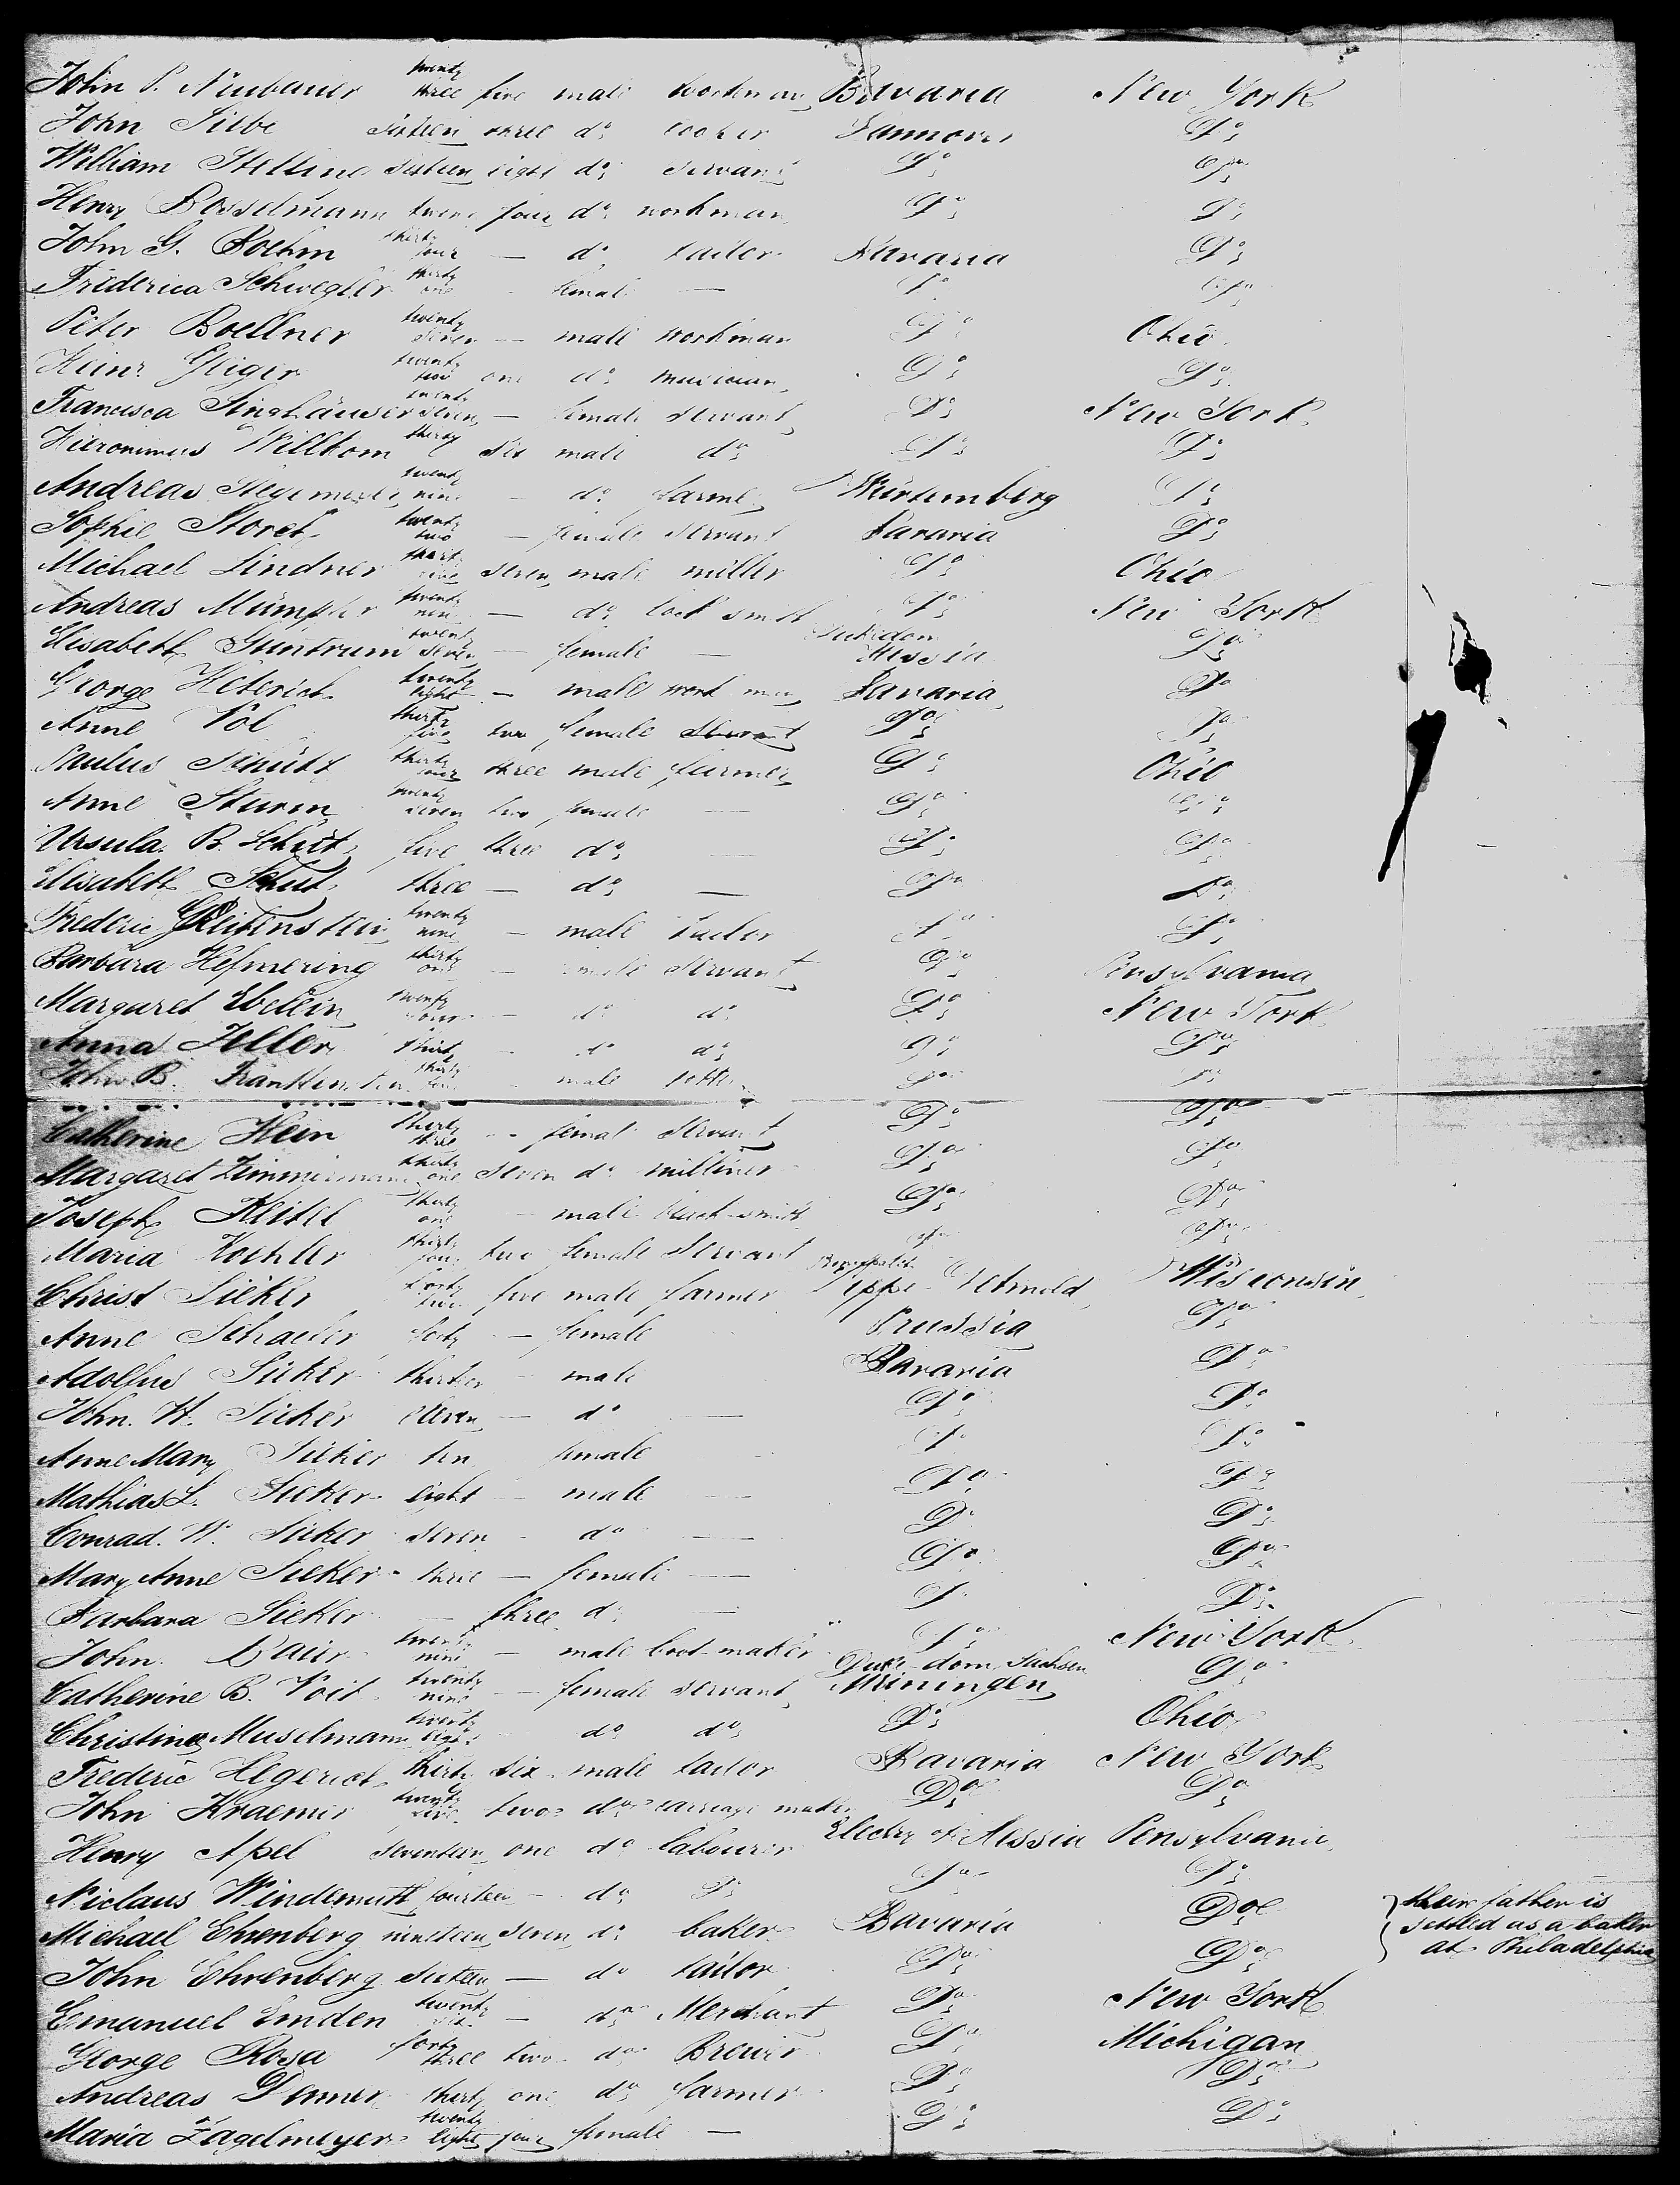 John P. Neubauer twenty three five male workman Bavaria New York
John Siebe sixteen three do cooker Hannover Do
William Stelling sixteen eight do servant Do Do
Henry Bosselmann twent four do workman Do Do
John G. Boehm thirty four — do tailor Bavaria Do
Frederica Schwegler thirty one female — Do Do
Peter Boellner twenty seven — male workman Do Ohio
Heinr. Geiger twenty two one do musician Do Do
Francisca Singhäuser twenty seven — female servant Do New York
Hieronimus Willkom thirty six male do Do Do
Andreas twenty nine - do farmer Würtemberg Do
Sophie Storch twenty two — female servant Bavaria Do
Michael Lindner thirty five seven male miller Do Ohio
Andreas Mümpfer twenty nine — do lock smith Do New York
Elisabeth Guntrum twenty seven — female — Hessia Do
George Heterich twenty eight — male work man Bavaria Do
Anne Vol thirty five two female servant Do Do
Paulus Schütz thirty four three male farmer Do Ohio
Anne Sturm twenty seven two female — Do Do
Ursula B. Schütz five three do — Do Do
Elisabeth Schüt three — do — Do Do
Frederic twenty nine - male tailor Do Do
Barbara Hefmering thirty one - female servant Do Pensylvania
Margaret Ebelein twenty four - do do Do New York
Anna Zeller thirty - do do Do Do
John B. Frankenstein thirty four male potter Do Do
Catherine Hein thirty three - female servant Do Do
Margaret Zimmermann thirty one seven do milliner Do Do
Joseph Keitel thirty one male black-smith Do Do
Maria Koehler thirty four two female servant Do Do
Christ Sieker forty two five male farmer Lippe-Detmold Wisconsin
Anne Schaefer forty — female Prussia Do
Adolfus Sieker thirteen - male Bavaria Do
John. H. Sieker eleven — do — Do Do
Anne Mary Sieker ten female Do Do
Mathias L. Sieker eight — male — Do Do
Conrad. W. Sieker seven - do — Do Do
Mary Anne Sieker three — female — Do Do
Barbara Sieker — three do — Do Do
John Bauer twenty nine — male boot-maker Do New York
Catherine B. Voit twenty nine — female servant Duke-dom Sachsen Meiningen Do
Christina Muselmann twenty eight do do Do Ohio
Frederic Hegerich thirty six male tailor Bavaria New York
John Kraemer twenty five two do carriage maker Do Do
Henry Apel seventeen one do labourer Electry of Hessia Pensylvania
Niclaus Windemuth fourteen - do Do Do Do
Michael Ehrenberg nineteen seven do baker Bavaria Do } their father is settled as a baker at Philadelphia
John Ehrenberg sixteen — do tailor Do Do
Emanuel Emden twenty six — do Merchant Do New York
George Rosa forty three two do Brewer Do Michigan
Andreas Donner thirty one do farmer Do Do
Maria Zagelmeyer twenty eight four female — Do Do